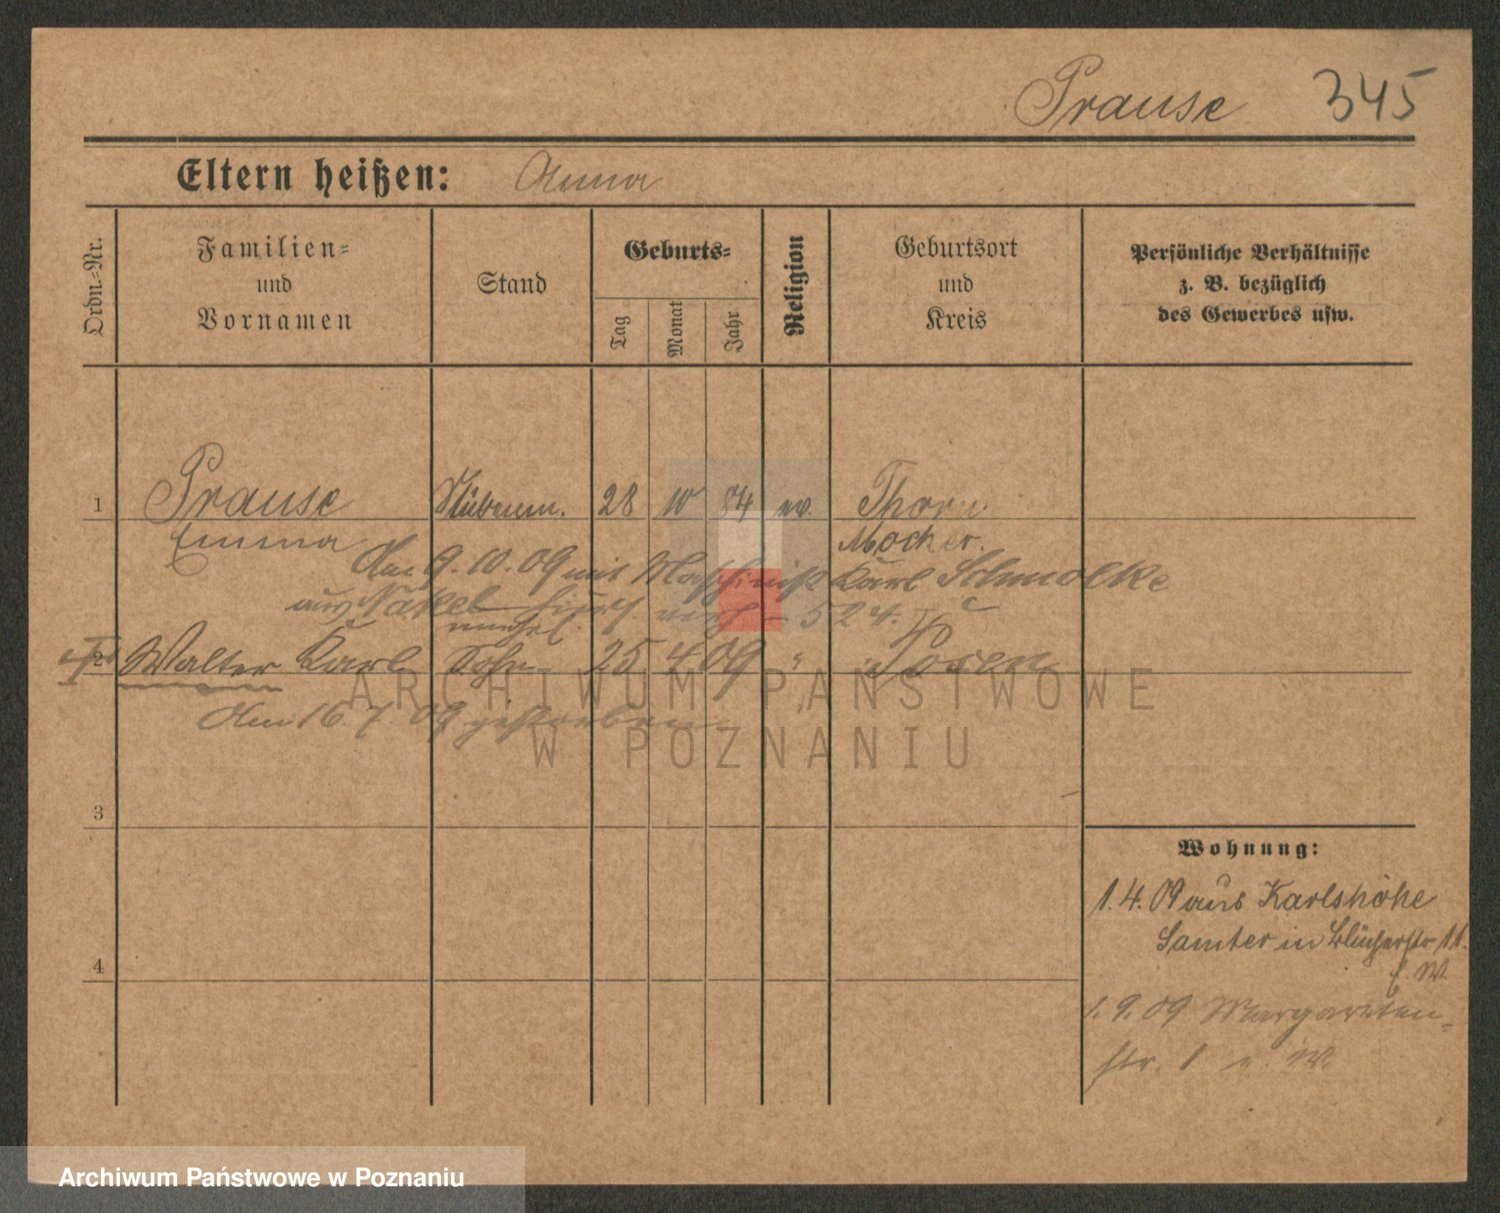 Prause 345
Eltern heißen: Anna
Ordn.-Nr.
Familien-
und
Vornamen
Stand
Geburts-
Tag
Monat
Jahr
Religion
Geburtsort
und
Kreis
Persönliche Verhältnisse
z. B. bezüglich
des Gewerbes usw.
1 Prause 28 10 84 ev. Thorn
Emma Mocker.
Am 9.10.09 mit Maschinist Karl Schmolke
aus Nakel 524.
unehel.
2 Walter Karl Sohn 25 4 09 " Posen
Am 16.7.09 gestorben
3
4
Wohnung:
1.4.09 aus Karlshöhe
Samter in Blücherstr 11.
E. W.
1.9.09 Margareten-
str. 1 W.
ARCHIWUM PAŃSTWOWE
W POZNANIU
Archiwum Państwowe w Poznaniu